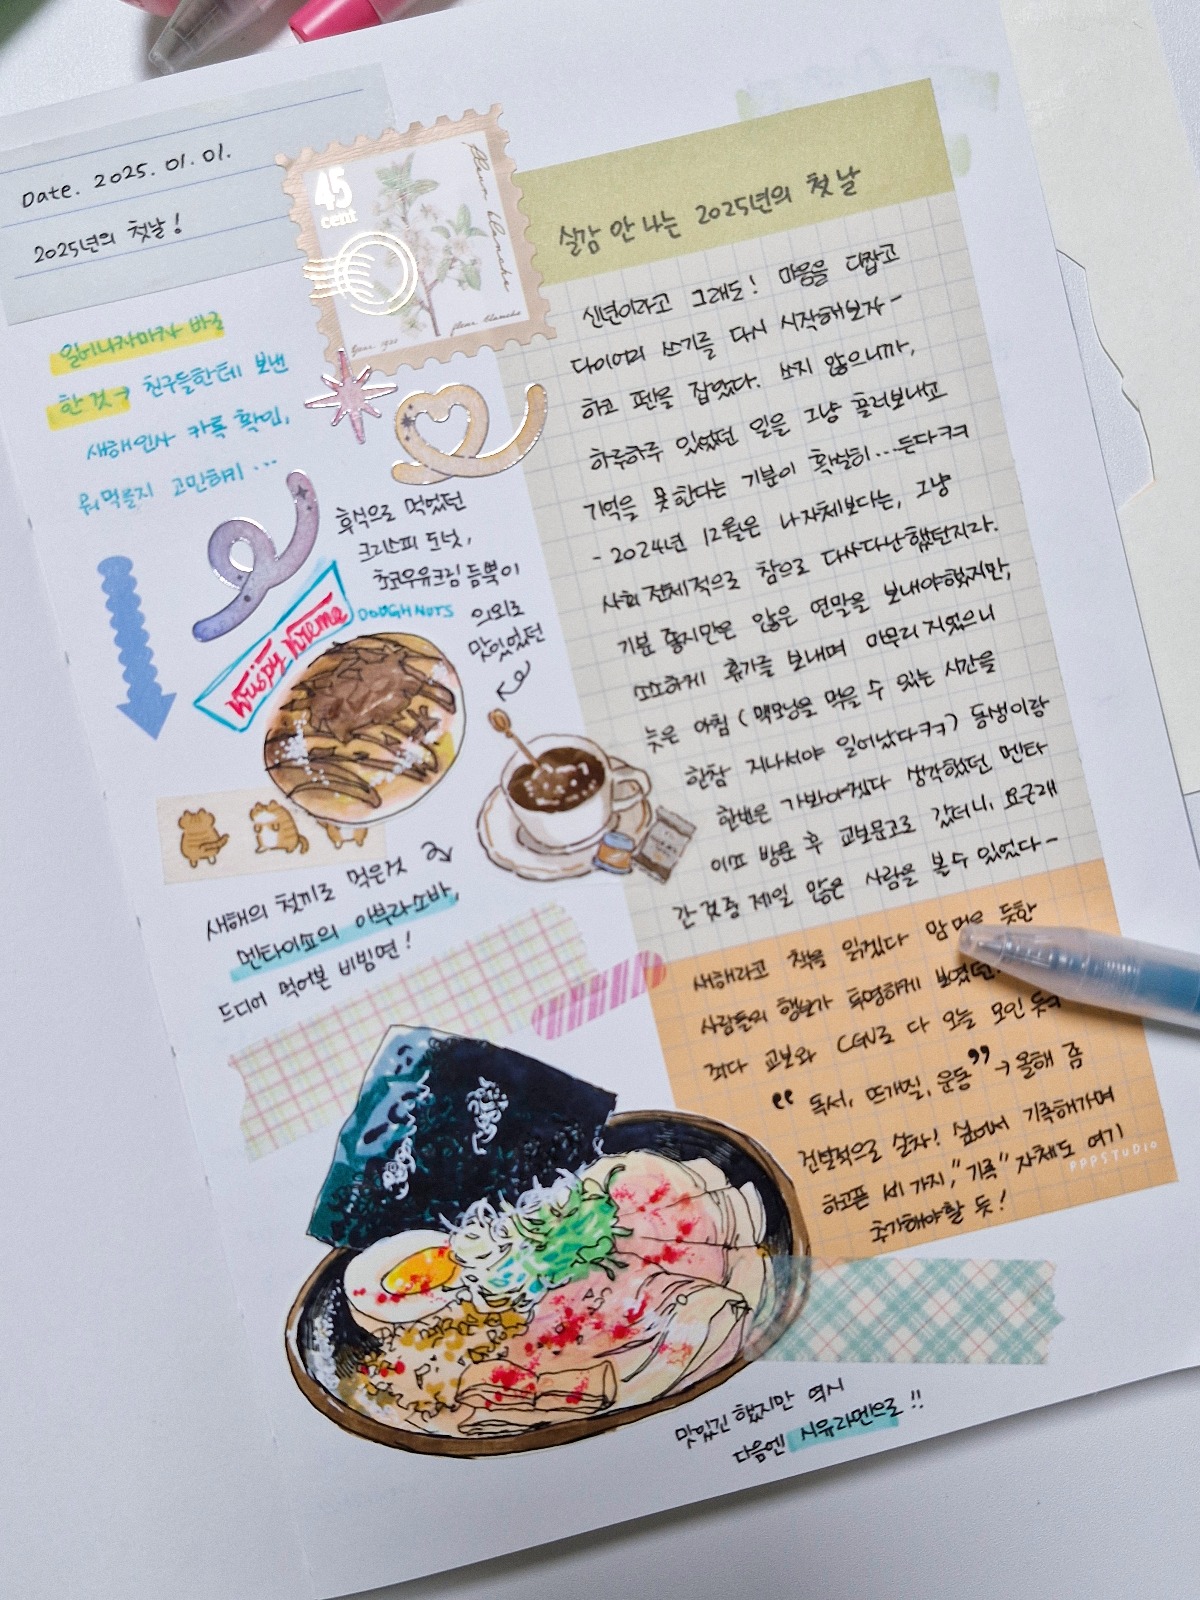 Date. 2025. 01. 01.
2025년의 첫날!
일어나자마자 바로
한 것 → 친구들한테 보낸
새해인사 카톡 확인,
뭐먹을지 고민하기 ...
45
cent
Fleur Blanche
fleur blanche
후식으로 먹었던
크리스피 도넛,
초코우유크림 듬뿍이
의외로
맛있었던
Krispy Kreme
DOUGHNUTS
새해의 첫끼로 먹은것
멘타이쇼의 아부라소바,
드디어 먹어본 비빔면!
실감 안 나는 2025년의 첫 날
신년이라고 그래도! 마음을 다잡고
다이어리 쓰기를 다시 시작해보자-
하고 펜을 잡았다. 쓰지 않으니까,
하루하루 있었던 일을 그냥 흘려보내고
기억을 못한다는 기분이 확실히...든다ㅋㅋ
- 2024년 12월은 나자체보다는, 그냥
사회 전체적으로 참으로 다사다난했던지라.
기분 좋지만은 않은 연말을 보내야했지만,
소소하게 휴가를 보내며 마무리 지었으니
늦은 아침 (맥모닝을 먹을 수 있는 시간을
한참 지나서야 일어났다ㅋㅋ) 동생이랑
한번은 가봐야겠다 생각했던 멘타
이쇼 방문 후 교보문고로 갔더니, 요근래
간 것중 제일 많은 사람을 볼수 있었다-
새해라고 책을 읽겠다 맘 먹은 듯한
사람들의 행보가 투명하게 보였던.
죄다 교보와 CGV로 다 오늘 모인 듯ㅋ
“ 독서, 뜨개질, 운동 ” → 올해 좀
건발적으로 살자! 쉼에서 기록해가며
하고픈 세 가지, "기록" 자체도 여기
추가해야할 듯!
PPPSTUDIO
맛있긴 했지만 역시
다음엔 시유라멘으로 !!